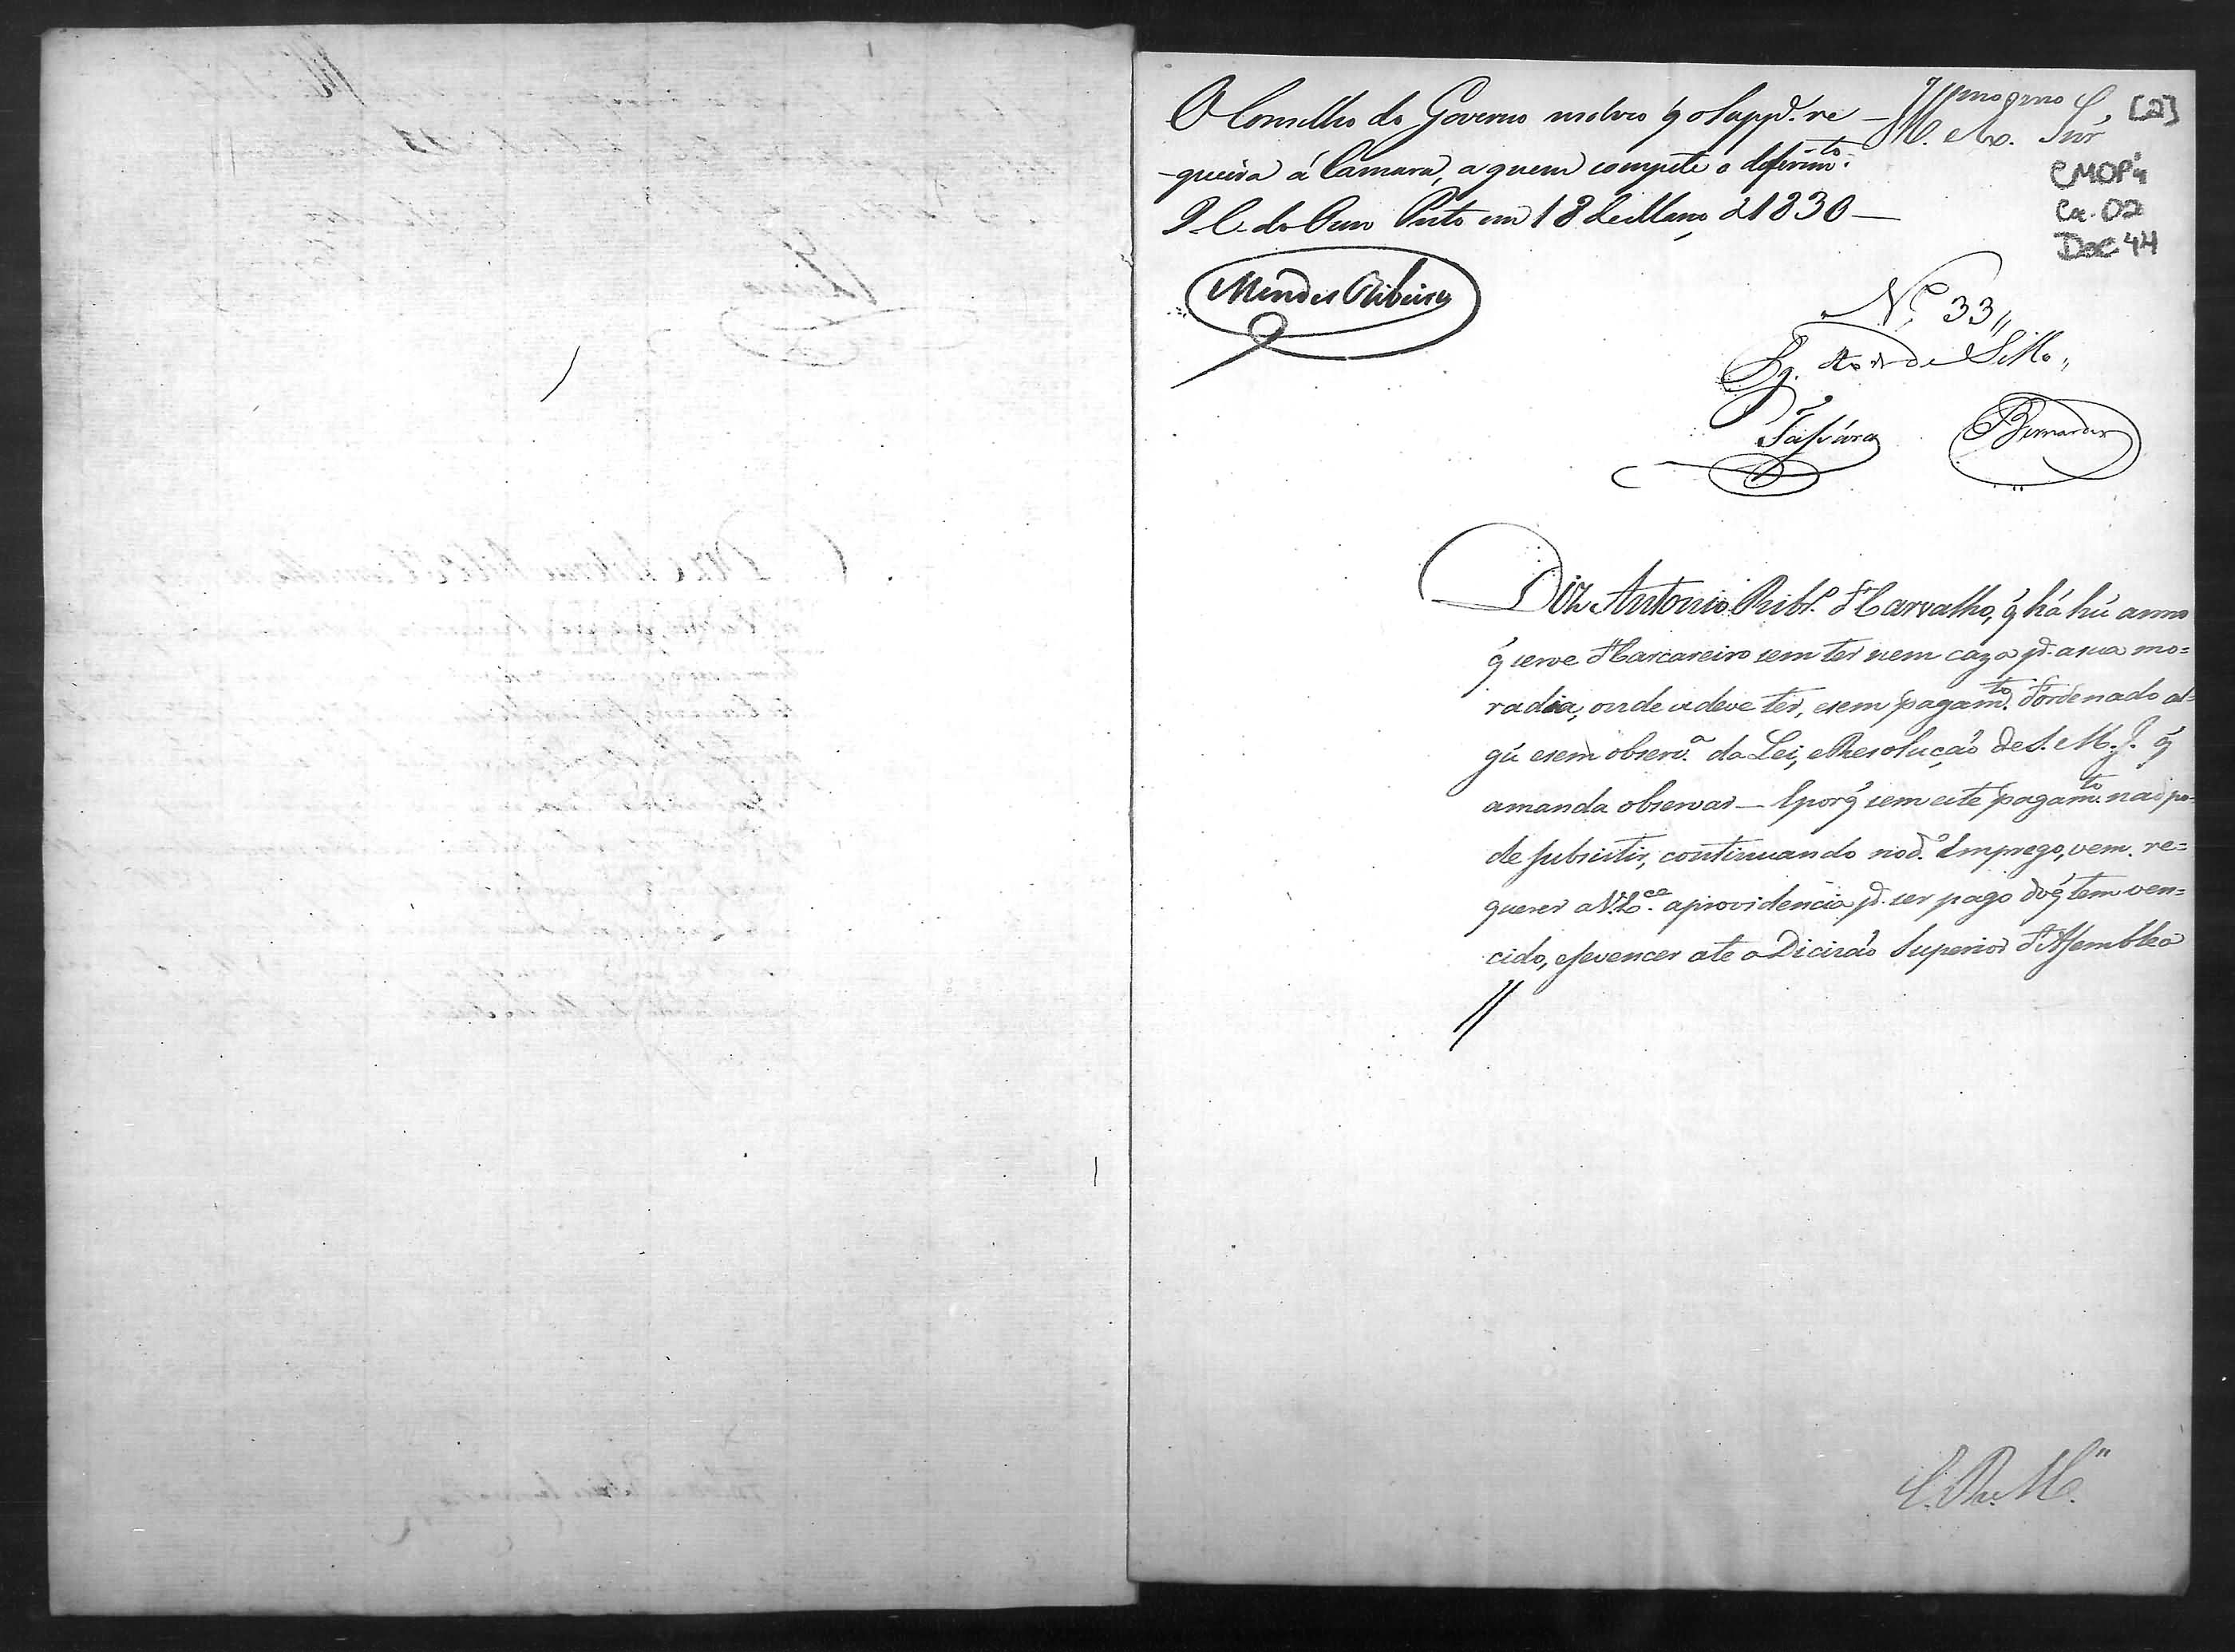 O Conselho do Governo resolveo q̃ o Supp.e re-
-queira á Camara, a quem compete o deferim.to.
P. C. do Ouro Preto em 18 de Março d 1830—
Mendes Ribeiro
Ill.mo Ex.mo Snr̃
[2]
CMOP
Cx. 02
Doc 44
N.º 33
Pg. de Sello
Bernardes
Diz Antonio Ribr.º d'Carvalho, q̃ há hũ anno
q̃ serve d'Carcareiro sem ter nem caza p.a a sua mo=
radia, onde a deve ter, e sem pagam.to d'ordenado al=
gũ e sem observ.a da Lei, e Resolução de S. M. J. q̃
a manda observar — E porq̃ sem este pagam.to naõ po=
de subsistir, continuando no d.º Emprego, vem re=
querer a V. Ex.ca a providencia p.a ser pago do q̃ tem ven=
cido, e se vencer ate a Dicizão Superior d'Assemblea
//
E. R. M.ce